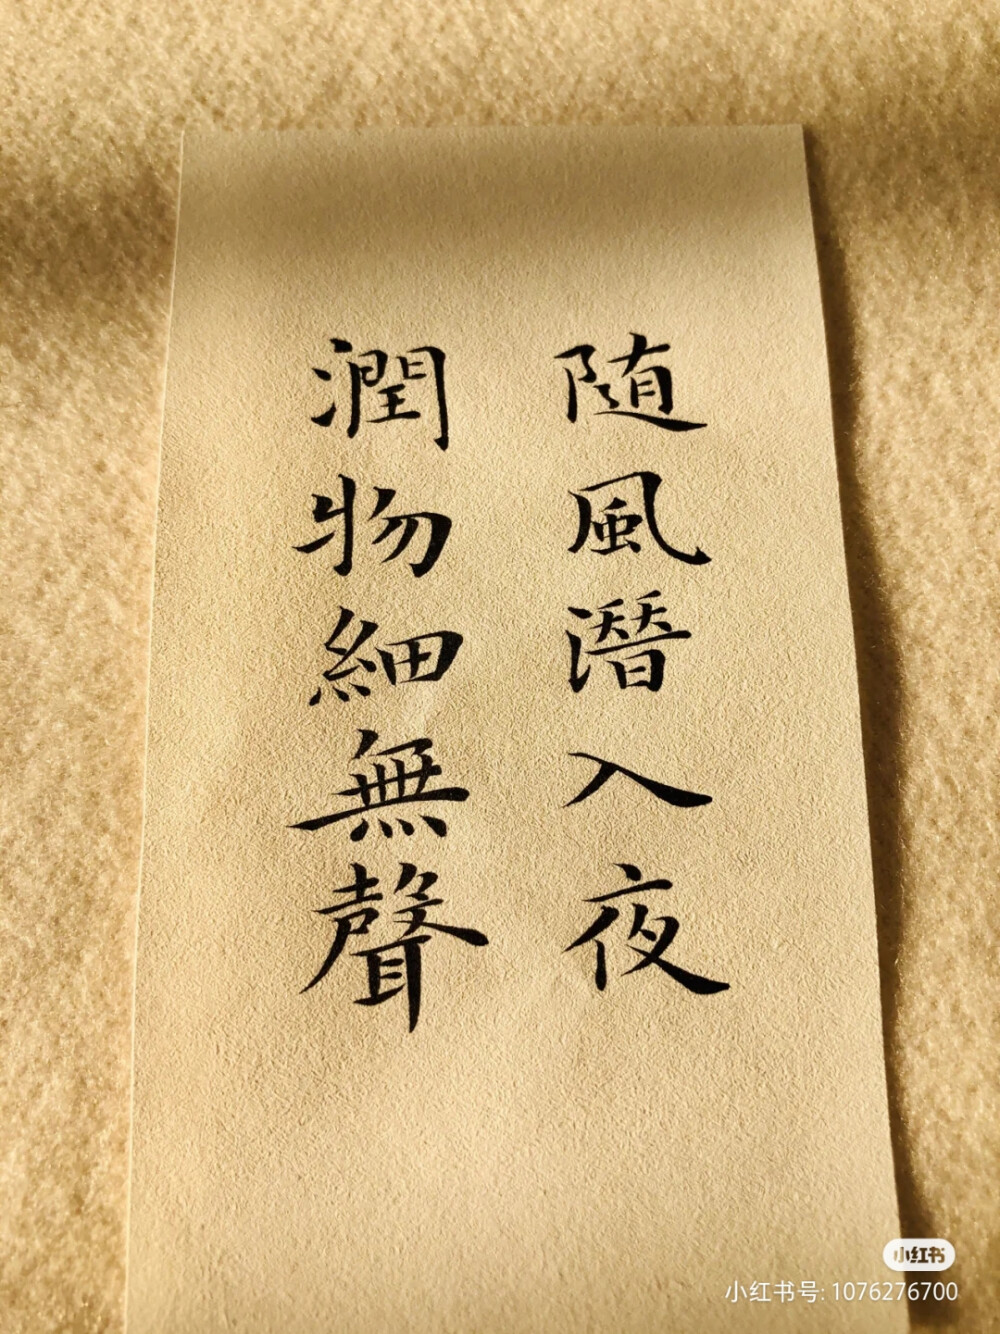 随風潛入夜
潤物細無聲
小红书
小红书号: 1076276700